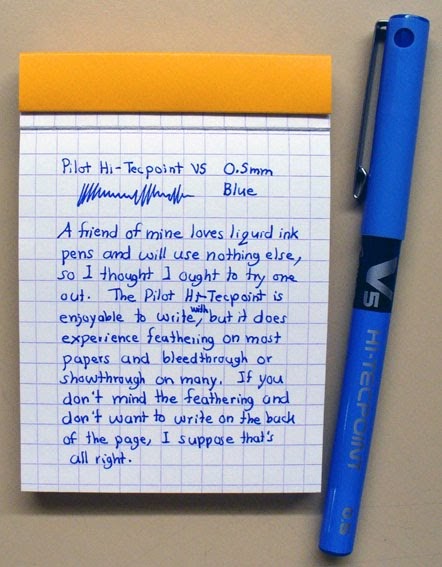 Pilot Hi-Tecpoint V5 0.5mm
Blue
A friend of mine loves liquid ink
pens and will use nothing else,
so I thought I ought to try one
out. The Pilot Hi-Tecpoint is
enjoyable to write with, but it does
experience feathering on most
papers and bleedthrough or
showthrough on many. If you
don't mind the feathering and
don't want to write on the back
of the page, I suppose that's
all right.
V5 HI-TECPOINT 0.5